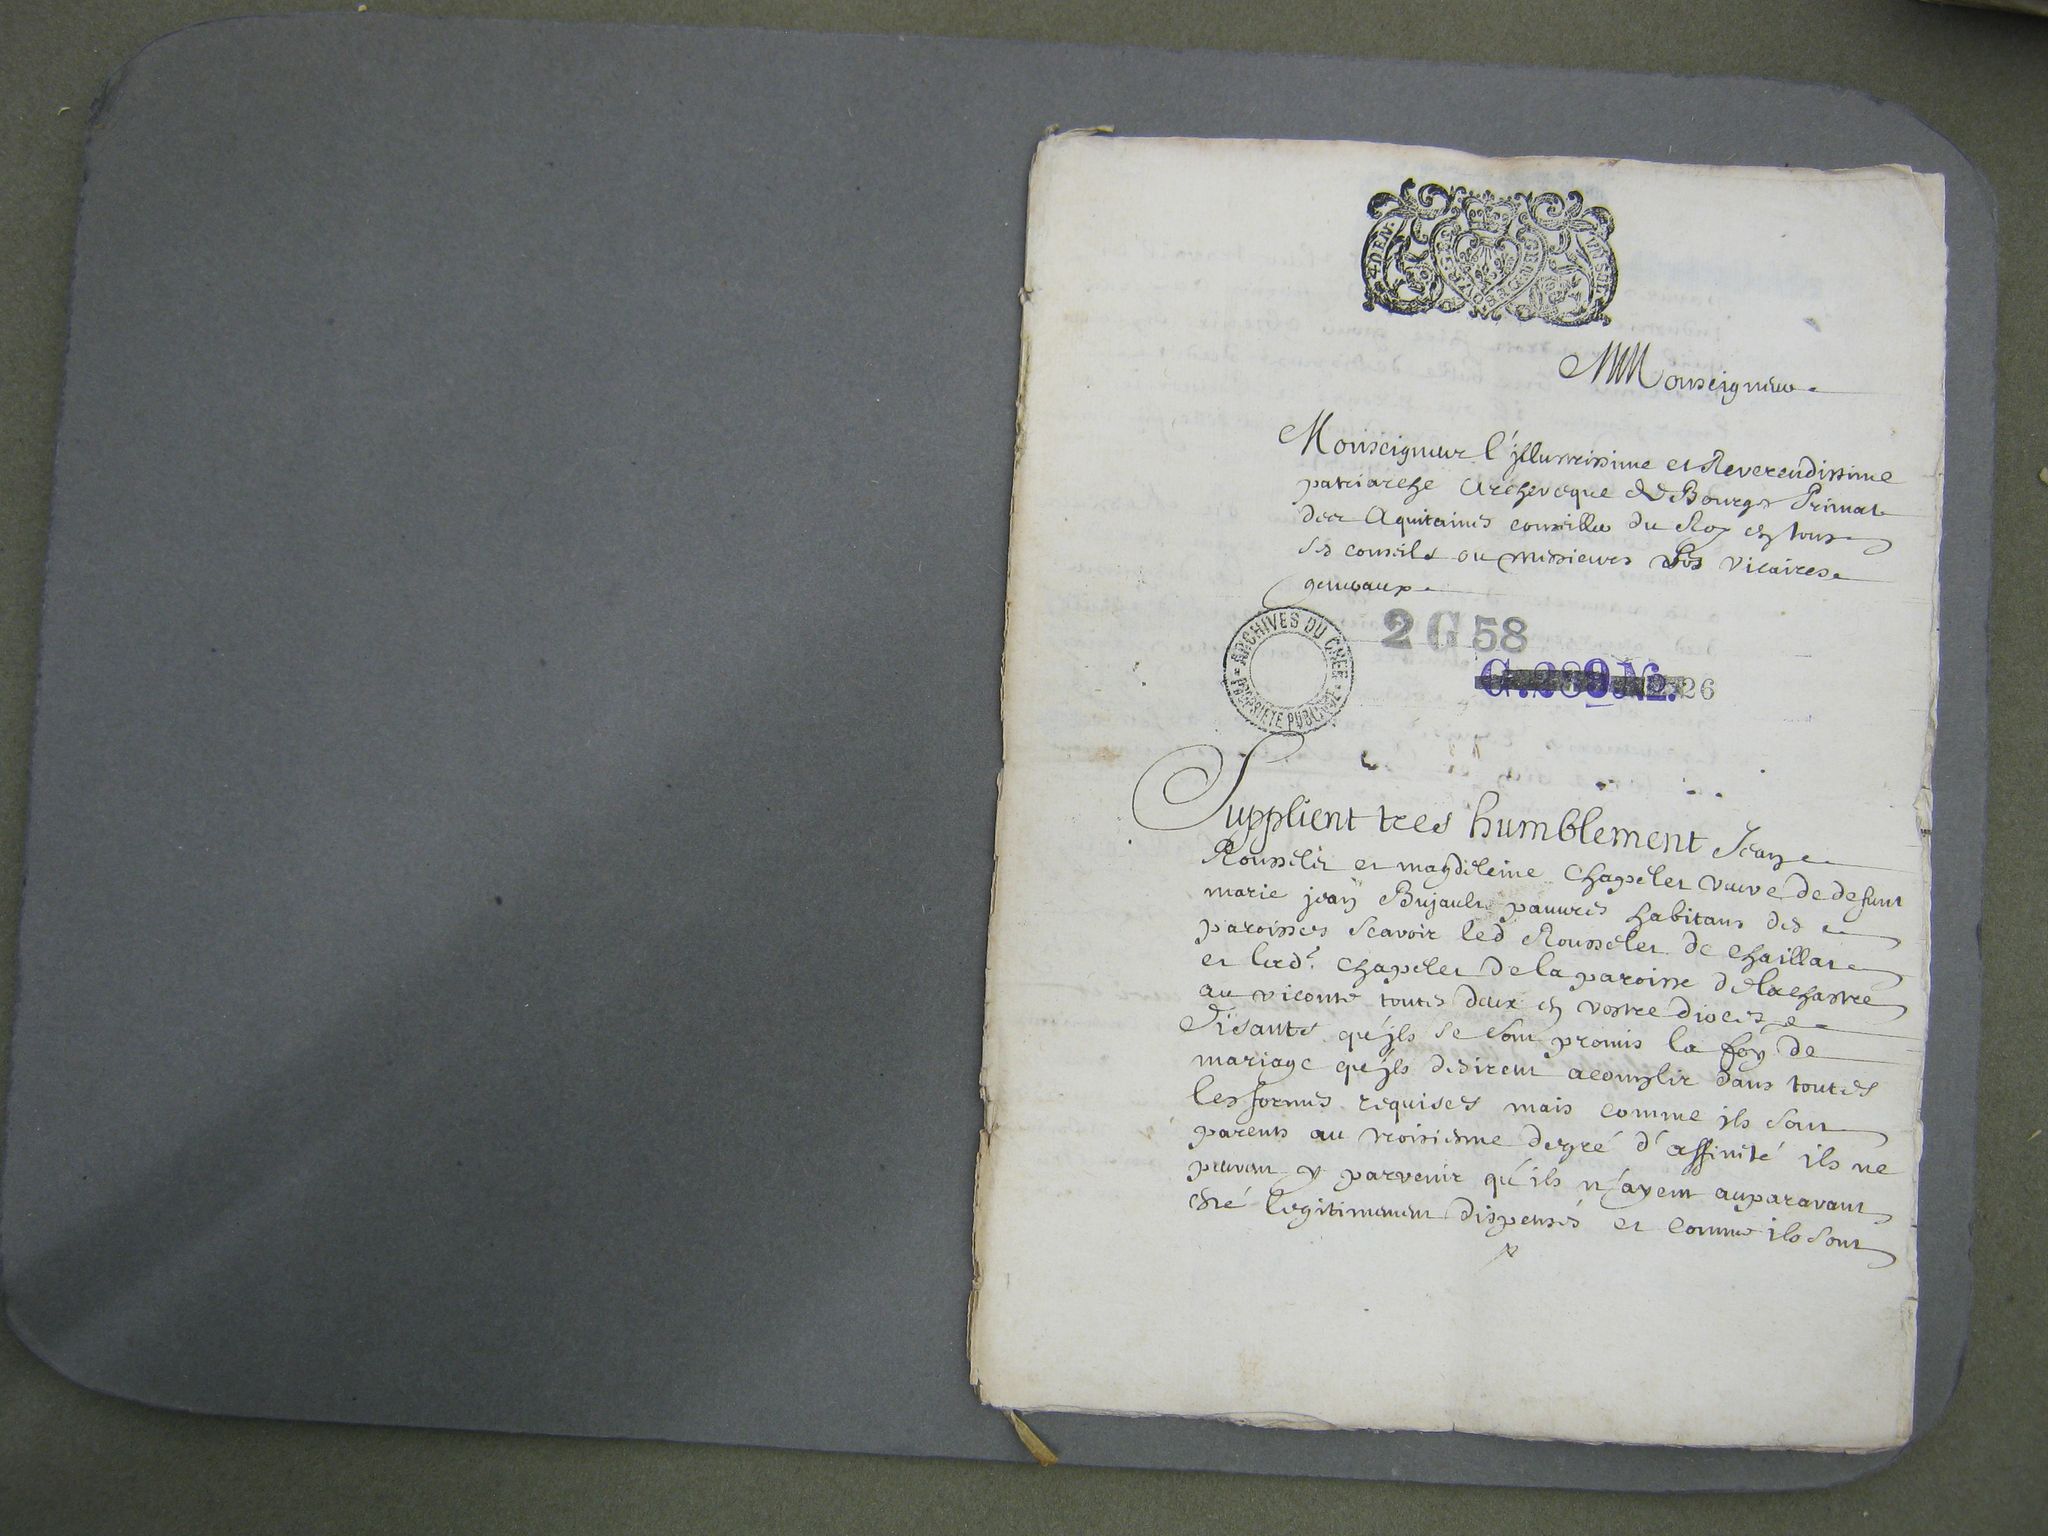 4 DEN
BOVRGES
Monseigneur
Monseigneur l'jllustrissime et Reverendissime
patriarche Archeveque de Bourges Primat
des Aquitaines conseiller du Roy en tous
ses conseils ou messieurs vos vicaires
generaux
ARCHIVES DU CHER
PROPRIETE PUBLIQUE
2 G 58
26
Supplient tres humblement Jean
Rousselet et magdeleine Chapelet veuve de defunt
marie jean Bujault pauvres habitans des
paroisses scavoir led Rousselet de chaillac
et lad.e chapelet de la paroisse de lachastre
au viconte toutes deux en vostre diocese
Disants qu'jls se sont promis la foy de
mariage qu'jls desirent acomplir dans toutes
les formes requises mais comme ils sont
parents au troisiesme degré d'affinité ils ne
peuvent y parvenir qu'ils n'ayent auparavant
esté legitimement dispensés et comme ils sont